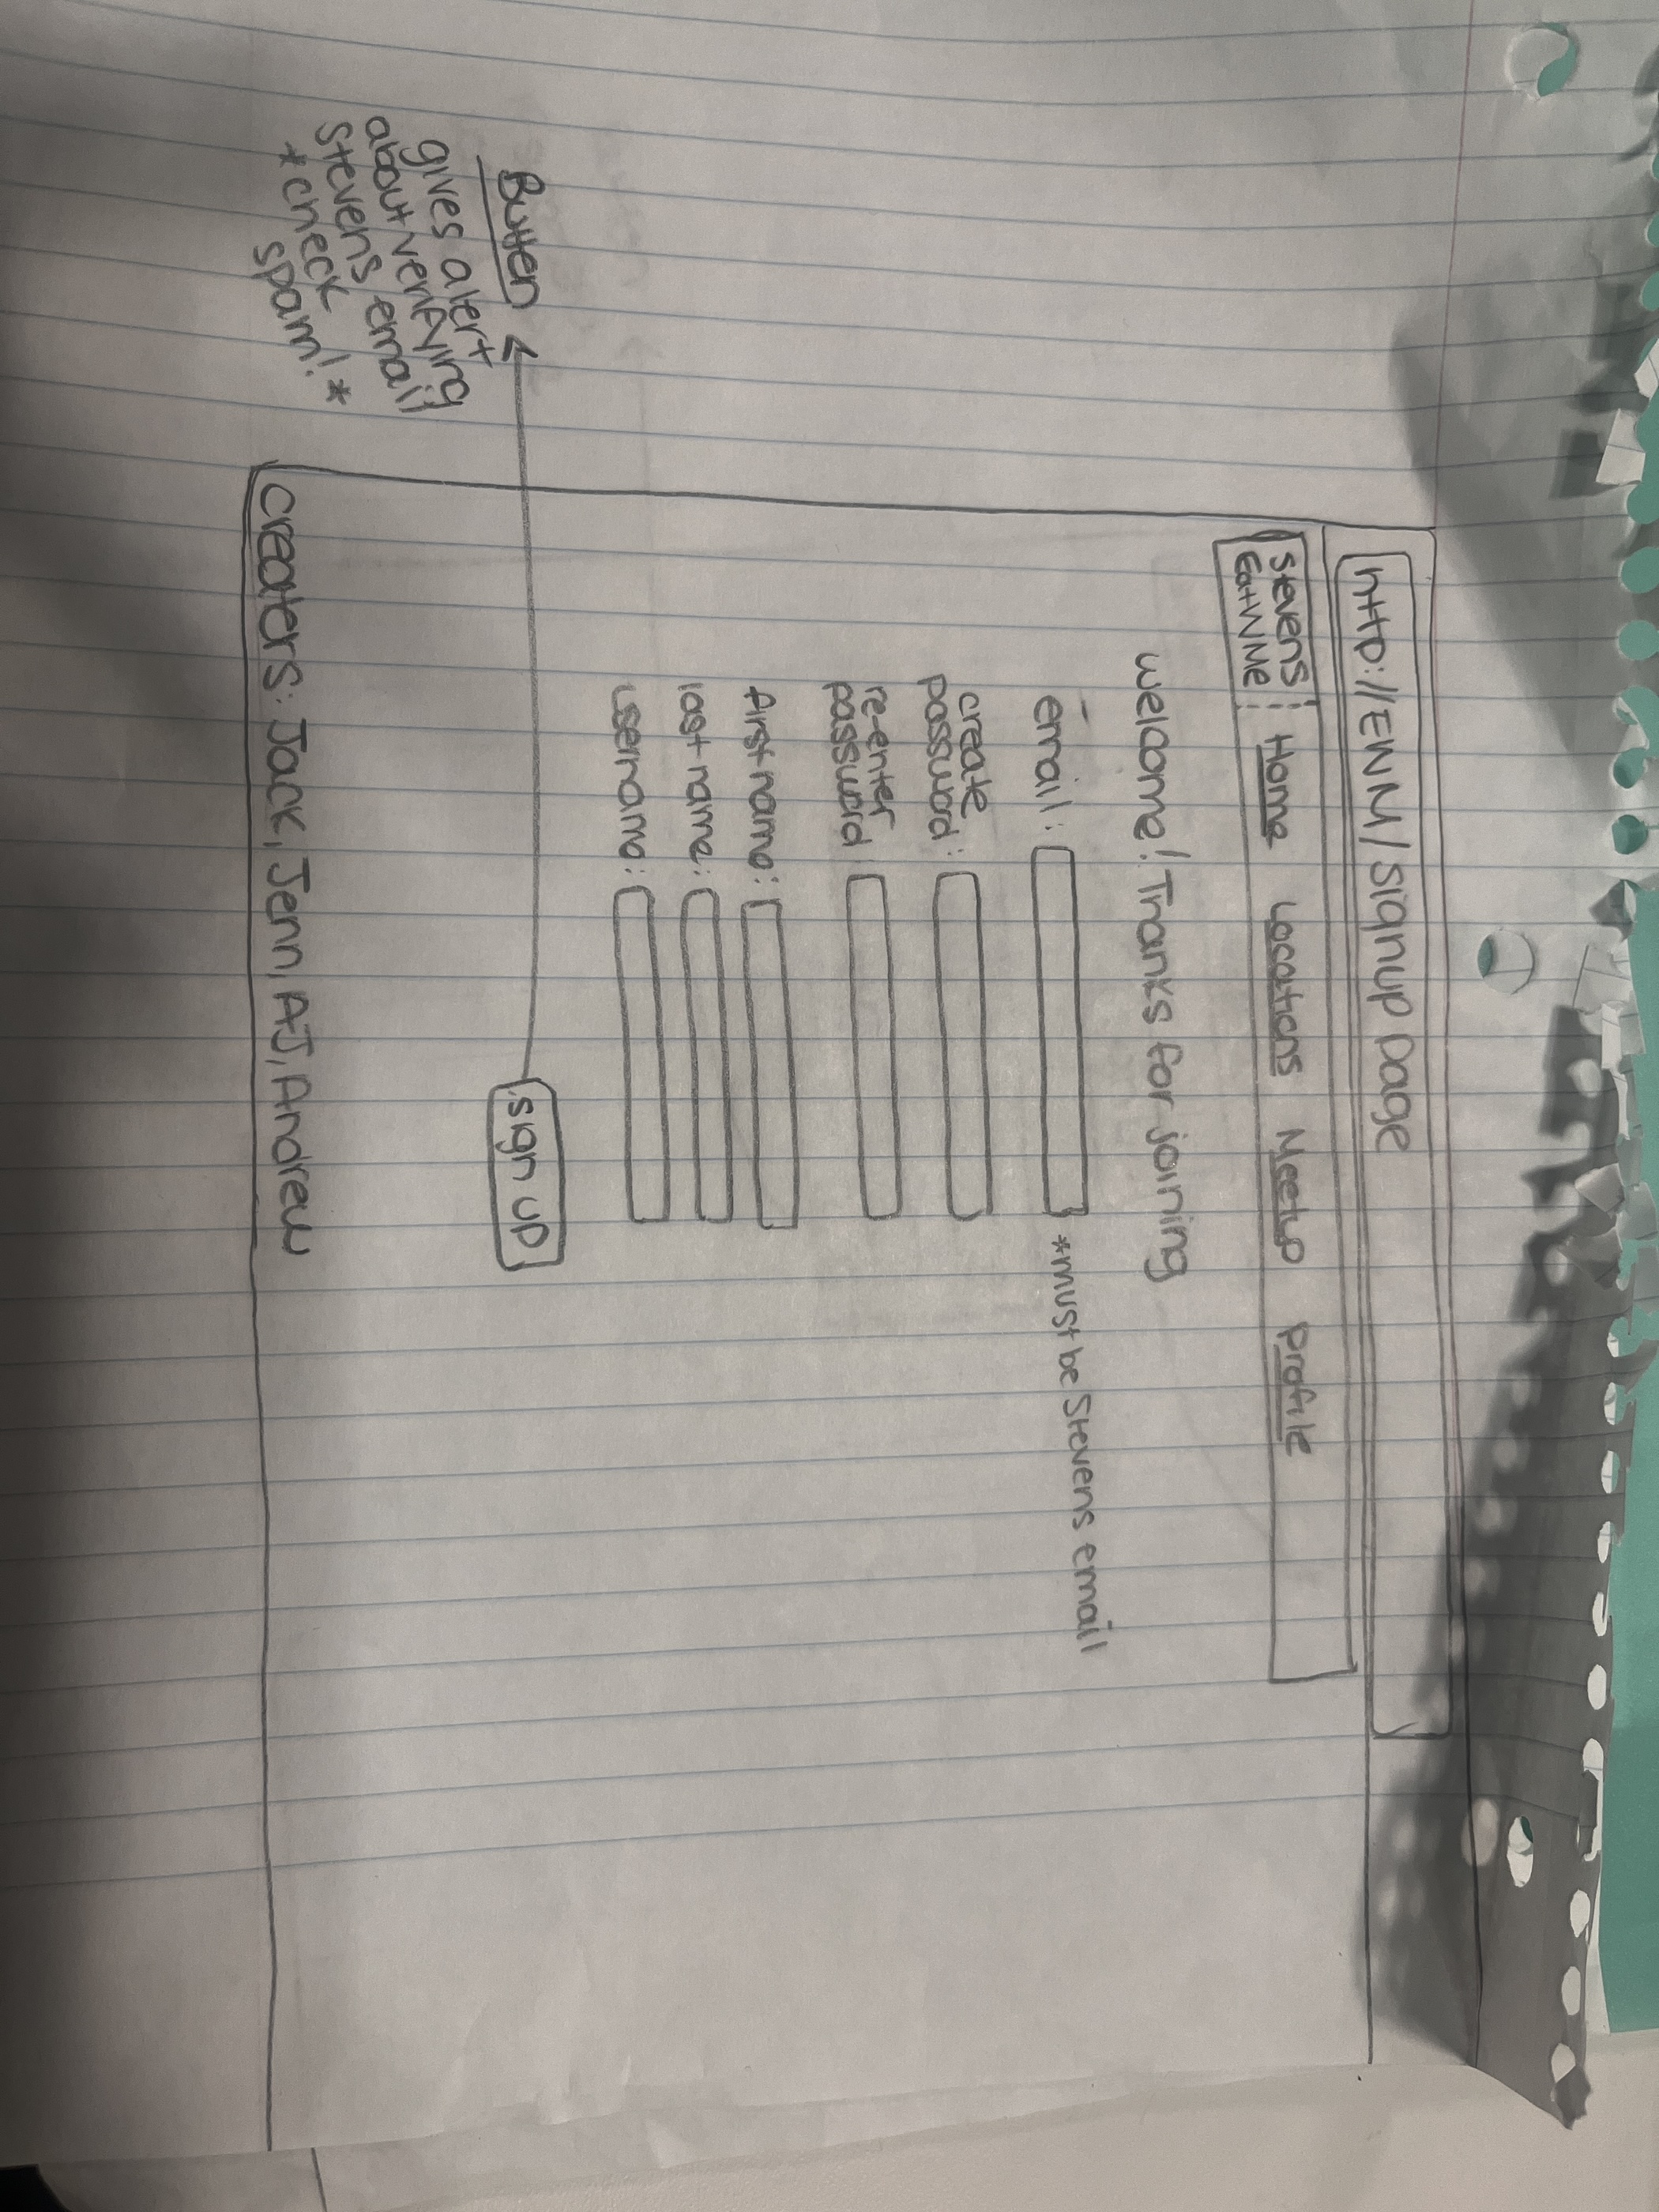 http://EWM/signup page
Stevens
EatWMe
Home Locations Meetup Profile
welcome! Thanks for joining
email: *must be Stevens email
create
password:
re-enter
password:
first name:
last name:
username:
sign up
Button
gives alert
about verifying
stevens email
*check
spam!*
Creaters: Jack, Jenn, AJ, Andrew